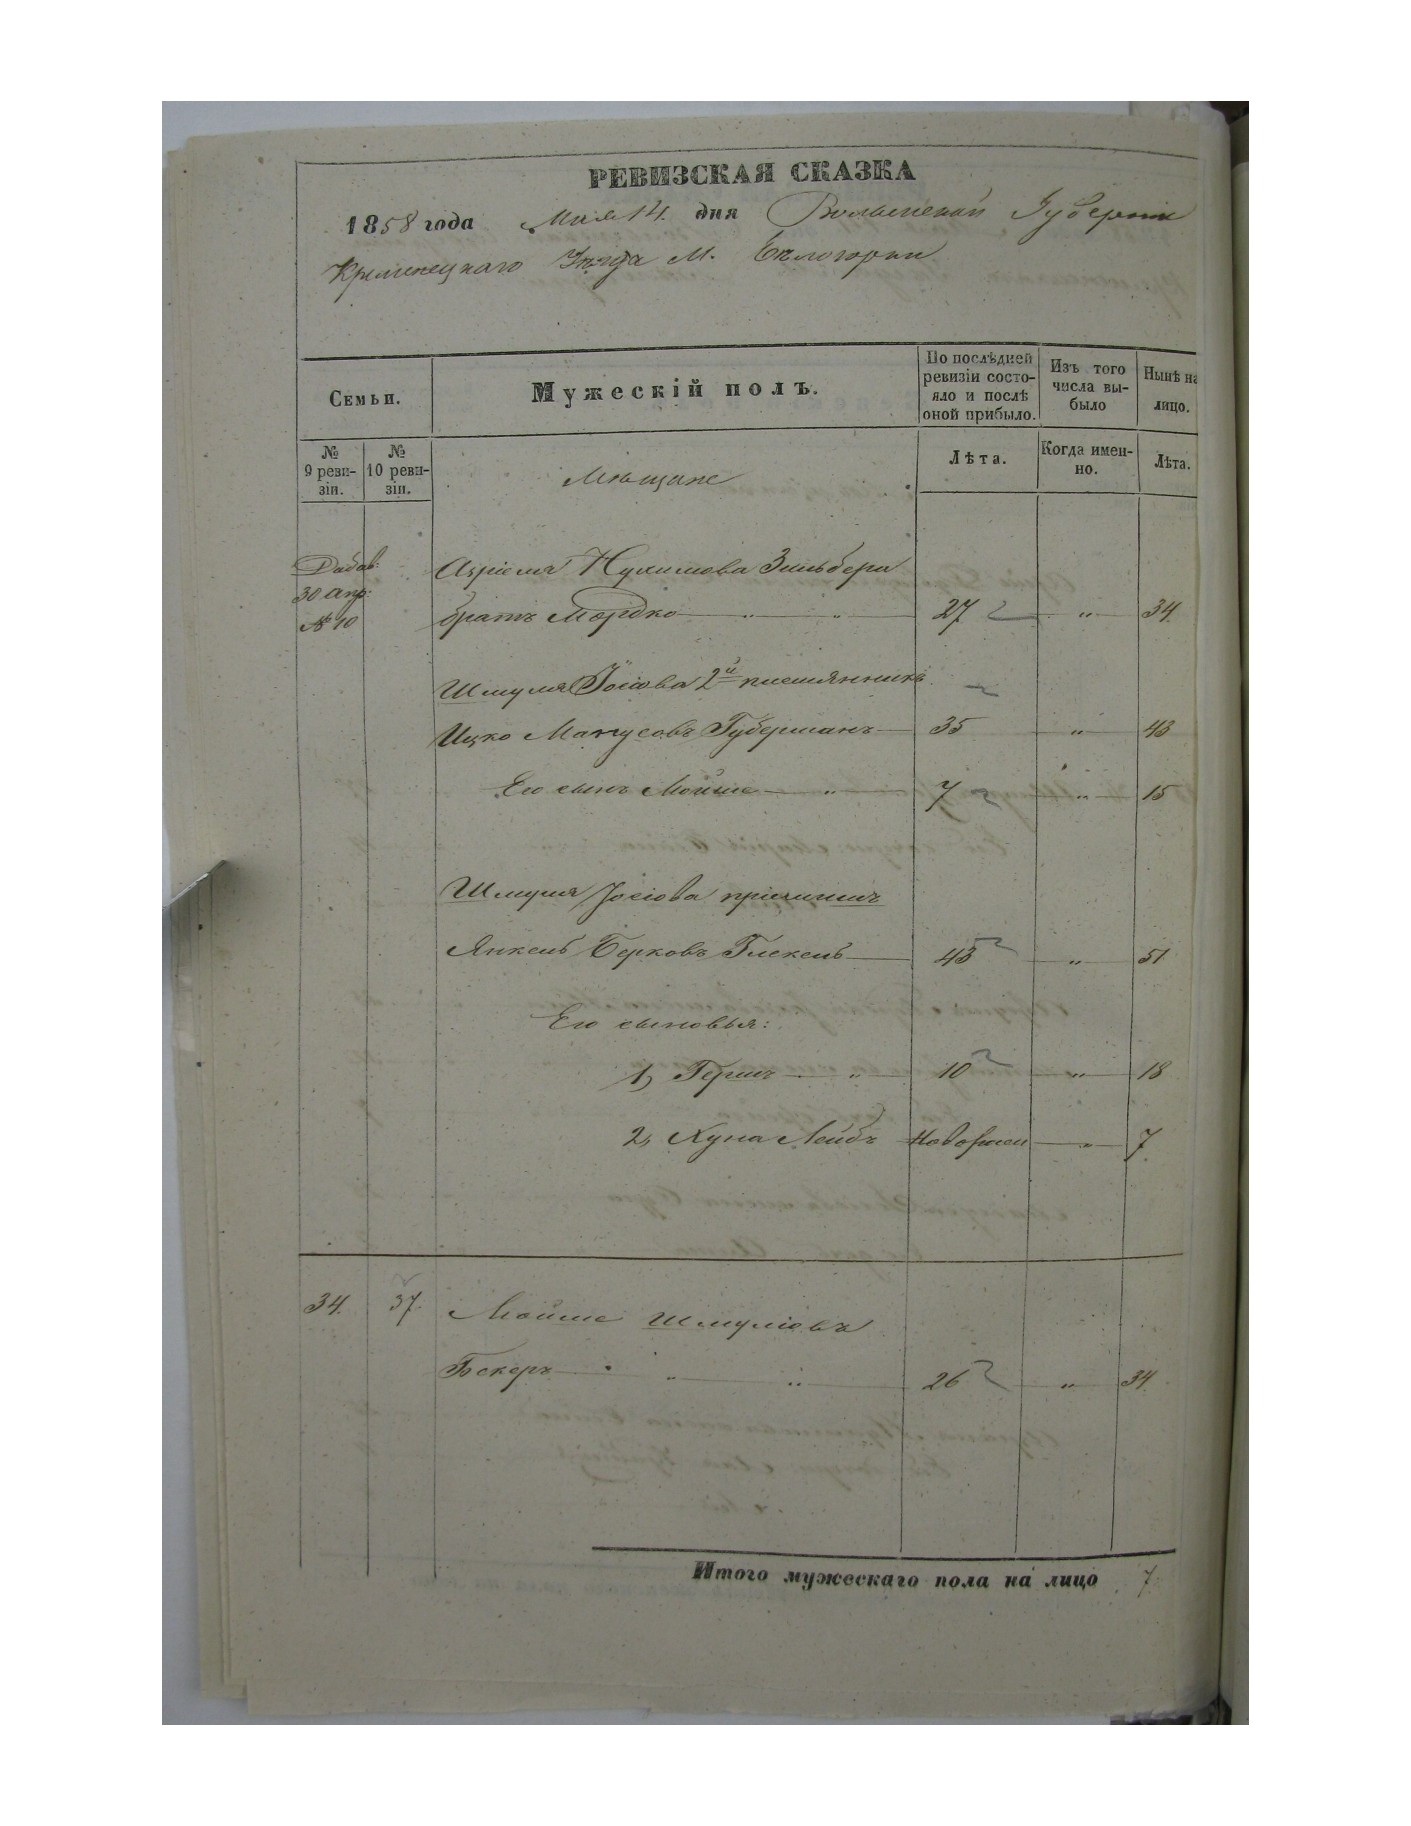 РЕВИЗСКАЯ СКАЗКА
1858 года Мая 14. дня Волынской Губерніи
Кременецкаго Уѣзда М. Бѣлогорки
Семьи.
Мужескій полъ.
По послѣдней ревизіи состо-
яло и послѣ оной прибыло.
Изъ того числа вы-
было
Нынѣ на лицо.
№ 9 реви-
зіи.
№ 10 реви-
зіи.
Мѣщане
Лѣта.
Когда имен-
но.
Лѣта.
Добав:
30 Апр:
№ 10
Азріеля Нухимова Зильбера
братъ Мордко " " 27 " 34.
Шмуля Іосіова 2й племянникъ
Ицко Манусовъ Губерманъ 35 " 43
Его сынъ Мойше " 7 " 15
Шмуля Іосіова пріемышъ
Янкель Берковъ Глекель 43 " 51
Его сыновья:
1, Гершъ " 10 " 18
2, Хуна Лейбъ Новорожен " 7
34. 37. Мойше Шмуліовъ
Бекеръ " " 26 " 34.
Итого мужескаго пола на лицо 7